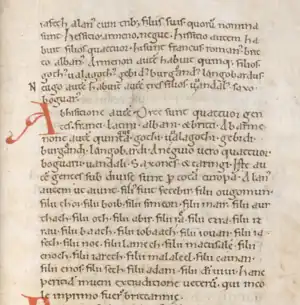 iafeth alan' cum trib; filiis suis quorū nomina
sunt hessitio. armeno. negue. hessitio autem ha
buit filios quattuor. hi sunt francus. roman'. brit
to. alban'. Armenon autē habuit quinq; filios
goth'. ualagoth'. gebid'. burgand'. langobardus.
Neugo autē habuit autē tres filios uuandal'. saxo.
boguar'.
Ab hisitione autē orte sunt quattuor gen
tes. franci. latini. albani. & britti. Ab arme
none autē quinq;. gothi. uualagothi. gebidi.
burgandi. langobardi. A neguio uero quattuor
boguarii. uandali. Saxones. & taringi. Iste au
tē gentes subdiuise sunt p tota europa. Alan'
autem ut aiunt fili' fuit fetebir. filii ougomun.
filii thoi. filii boib. filii simeon. filii mair. filii aur
thach. filii oth. filii abir. filii ra. filii ezra. filii iz
rau. filii baath. filii iobaath. filii iouan. filii ia
feth. filii noe. filii lamech. filii matusale. filii
enoch. filii iareth. filii malaleel. filii cainan.
filii enos. filii seth. filii adam. filii di uiui. hanc
peritiā inueni ex traditione ueterū. qui inco
le in primo fuer britanniae.